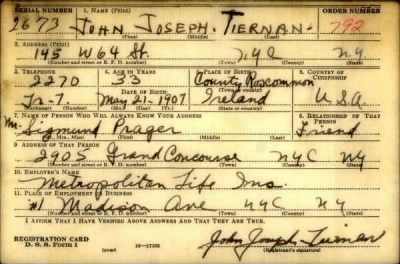 SERIAL NUMBER 1. NAME (Print) ORDER NUMBER
2673 JOHN JOSEPH. TIERNAN. 792
(First) (Middle) (Last)
2. ADDRESS (Print)
145 W 64 St. NYC NY
(Number and street or R. F. D. number) (Town) (County) (State)
3. TELEPHONE 4. AGE IN YEARS 5. PLACE OF BIRTH 6. COUNTRY OF CITIZENSHIP
2270 33 County Roscommon
DATE OF BIRTH (Town or county)
Tr-7 May 21-1907 Ireland USA
(Mo.) (Day) (Yr.) (State or country)
7. NAME OF PERSON WHO WILL ALWAYS KNOW YOUR ADDRESS 8. RELATIONSHIP OF THAT PERSON
Mr. Sigmund Prager Friend
(Mr., Mrs., Miss) (First) (Middle) (Last)
9. ADDRESS OF THAT PERSON
2905 Grand Concourse NYC NY
(Number and street or R. F. D. number) (Town) (County) (State)
10. EMPLOYER'S NAME
Metropolitan Life Ins.
11. PLACE OF EMPLOYMENT OR BUSINESS
#1 Madison Ave NYC NY
(Number and street or R. F. D. number) (Town) (County) (State)
I AFFIRM THAT I HAVE VERIFIED ABOVE ANSWERS AND THAT THEY ARE TRUE.
REGISTRATION CARD
D. S. S. Form 1 (over) 16-17105 John Joseph Tiernan
(Registrant's signature)